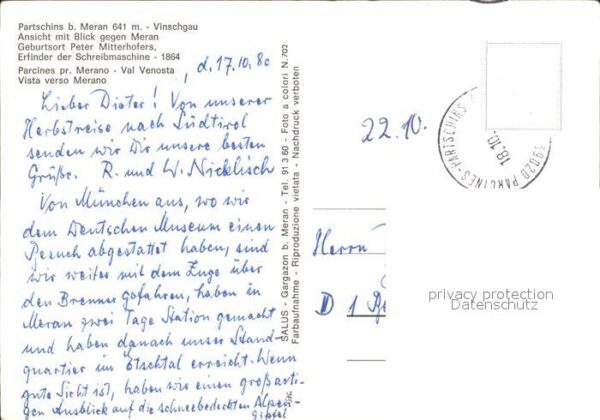 Partschins b. Meran 641 m. - Vinschgau
Ansicht mit Blick gegen Meran
Geburtsort Peter Mitterhofers,
Erfinder der Schreibmaschine - 1864
Parcines pr. Merano - Val Venosta
Vista verso Merano
, d. 17.10.80
Lieber Dieter! Von unserer
Herbstreise nach Südtirol
senden wir Dir unsere besten
Grüße. R. und W. Nicklisch
Von München aus, wo wir
dem Deutschen Museum einen
Besuch abgestattet haben, sind
wir weiter mit dem Zuge über
den Brenner gefahren, haben in
Meran zwei Tage Station gemacht
und haben danach unser Stand-
quartier im Ötschtal erreicht. Wenn
gute Sicht ist, haben wir einen großarti-
gen Ausblick auf die schneebedeckten Alpen-
gipfel
SALUS - Gargazon b. Meran - Tel. 91 3 60 - Foto a colori N. 702
Farbaufnahme - Riproduzione vietata - Nachdruck verboten
22.10.
39020 PARCINES-PARTSCHINS
18.10.
Herrn
D 1
privacy protection
Datenschutz